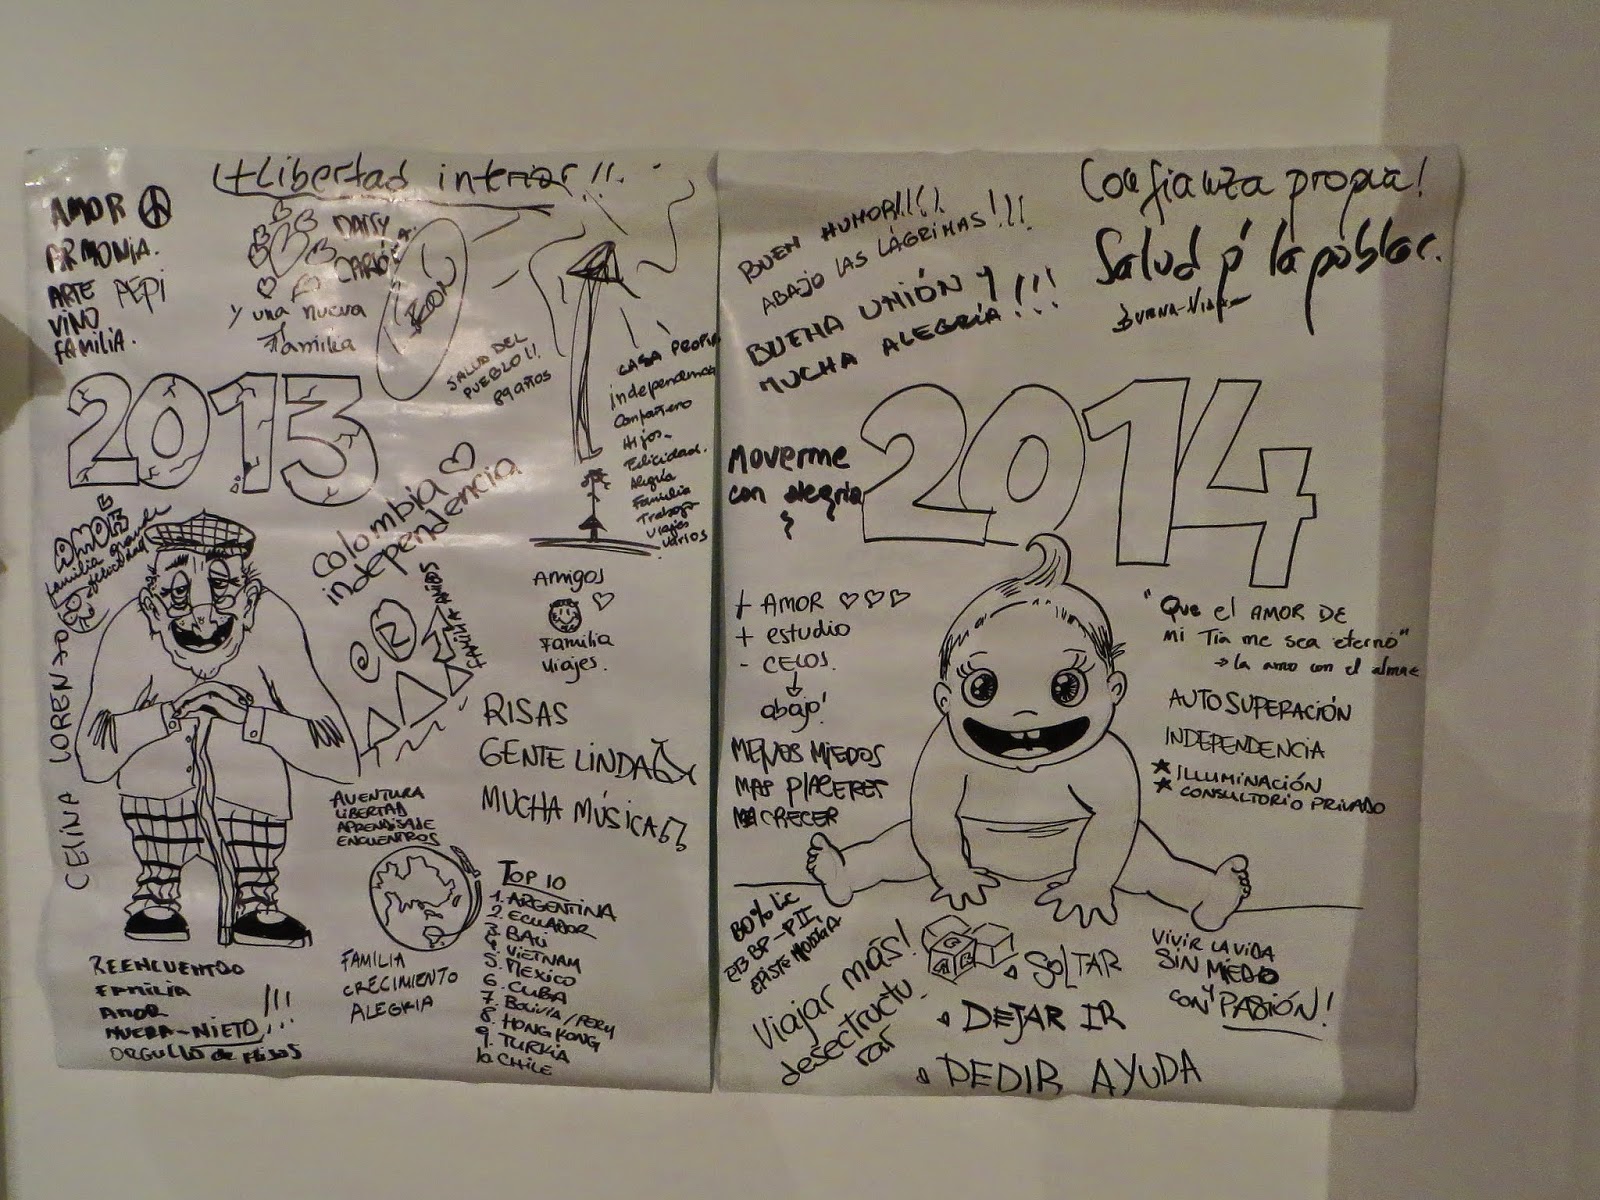 +Libertad interior!!.
AMOR
ARMONIA.
ARTE PEPI
VINO
FAMILIA.
DAISY
Y una nueva
Familia
SALUD DEL
PUEBLO!!
89 años
CASA PROPIA
independencia
Compañero
Hijos-
Felicidad.
Alegría
Familia
Trabajo
Viajes
varios
2013
AMOR
familia grande
Colombia
independencia
CELINA LORENZO
FAMILIA AMIGOS
Amigos
Familia
Viajes.
RISAS
GENTE LINDA
MUCHA MÚSICA
AVENTURA
LIBERTAD
APRENDISAJE
ENCUENTROS
FAMILIA
CRECIMIENTO
ALEGRIA
TOP 10
1. ARGENTINA
2. ECUADOR
3. BALI
4. VIETNAM
5. MEXICO
6. CUBA
7. BOLIVIA/PERU
8. HONG KONG
9. TURKIA
10. CHILE
REENCUENTRO
FAMILIA
AMOR !!!
NUERA-NIETO
ORGULLO de Hijos
BUEN HUMOR!!!!
ABAJO LAS LÁGRIMAS!!!
BUENA UNIÓN Y
MUCHA ALEGRÍA!!!
Confianza propia!
Salud p' la poblac.
BUENA-VIDA
2014
Moverme
con alegria
+ AMOR ♡♡♡
+ estudio
- CELOS.
abajo!
MENOS MIEDOS
MAS PLACERES
CRECER
"Que el AMOR DE
mi Tía me sea eterno"
→ la amo con el alma
AUTOSUPERACIÓN
INDEPENDENCIA
* ILLUMINACIÓN
* CONSULTORIO PRIVADO
80% Lic
Viajar más!
desectructu
rar
SOLTAR
DEJAR IR
PEDIR AYUDA
VIVIR LA VIDA
SIN MIEDO
Y
CON PASIÓN!